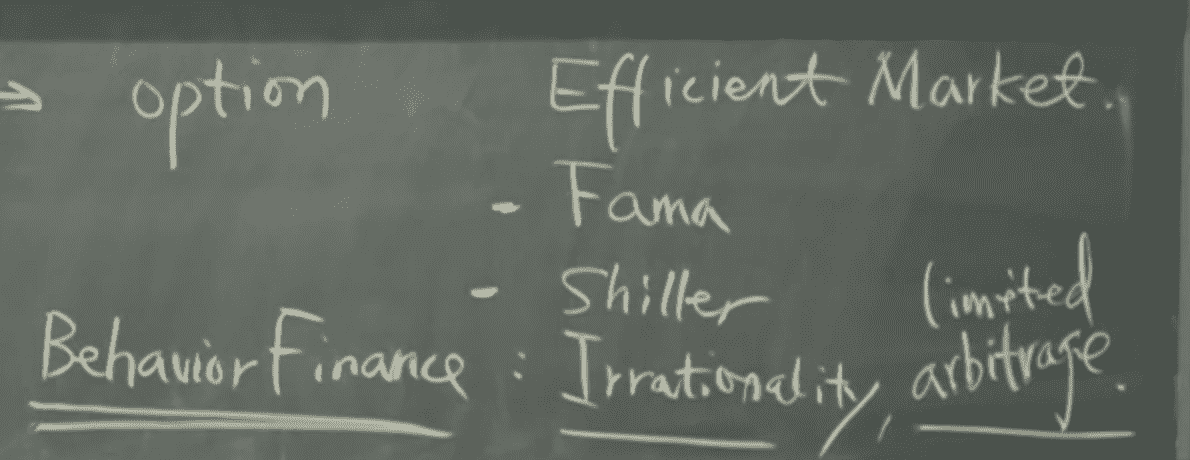 → option
Efficient Market.
- Fama
- Shiller
Behavior Finance : Irrationality, limited arbitrage.